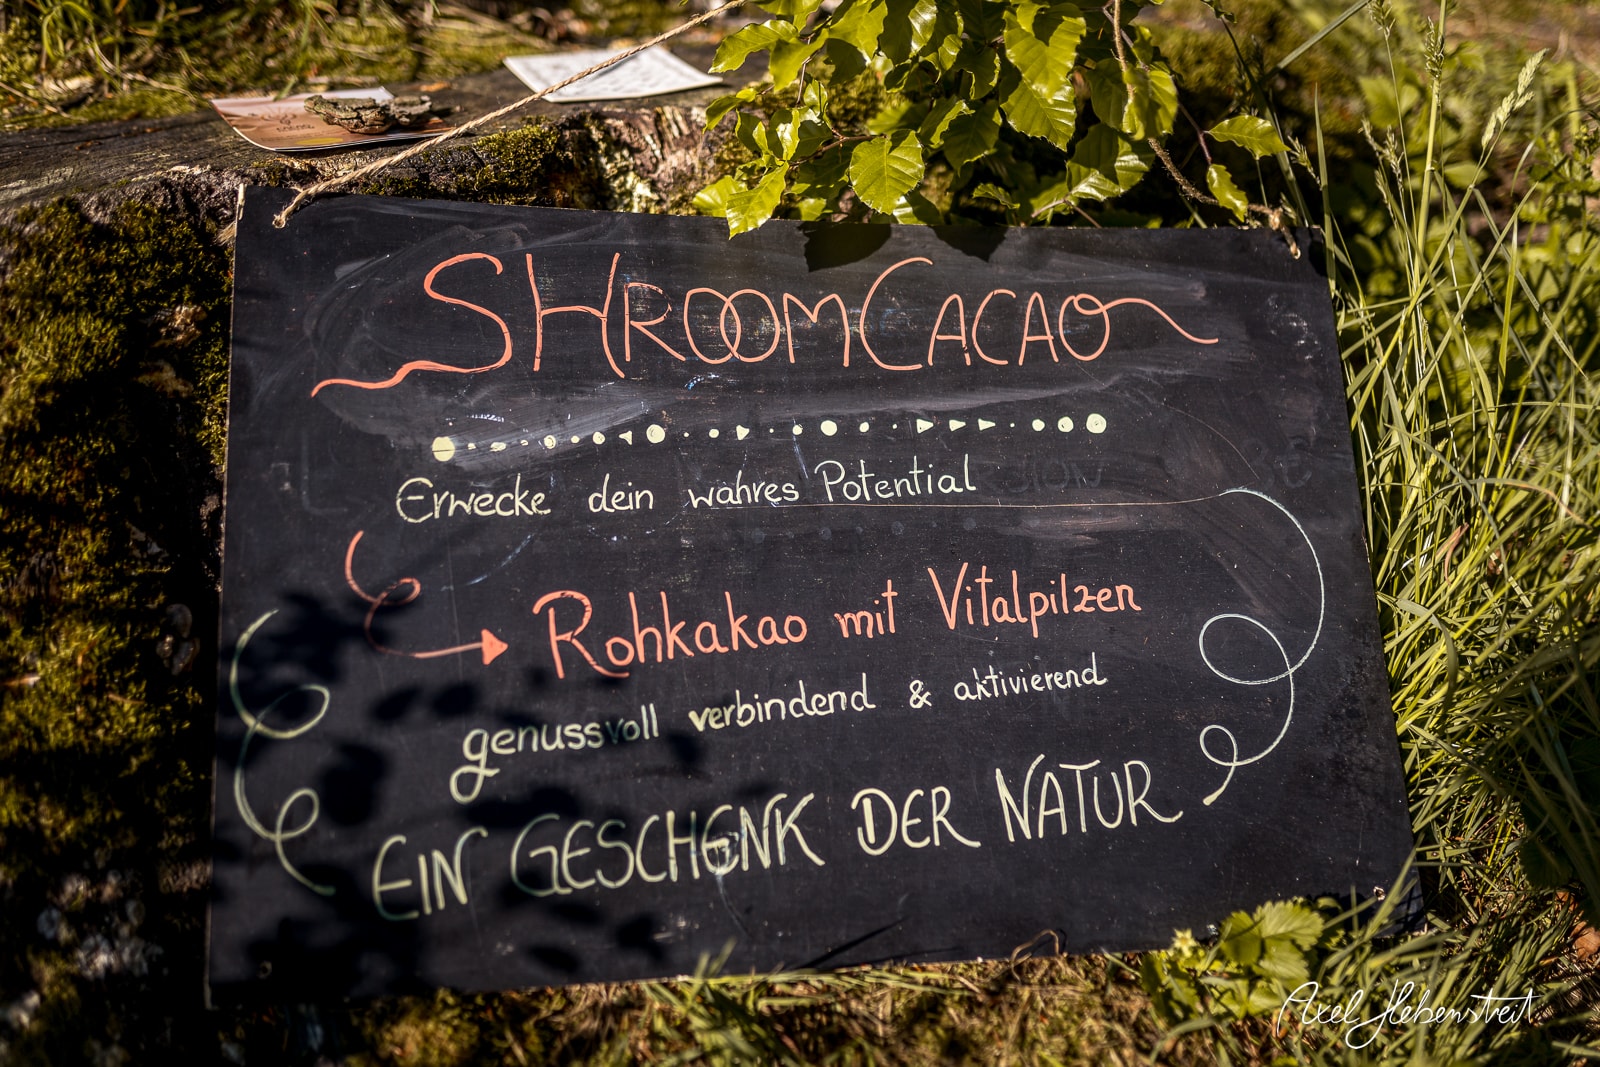 SHROOMCACAO
Erwecke dein wahres Potential
Rohkakao mit Vitalpilzen
genussvoll verbindend & aktivierend
EIN GESCHENK DER NATUR
Axel Hebenstreit